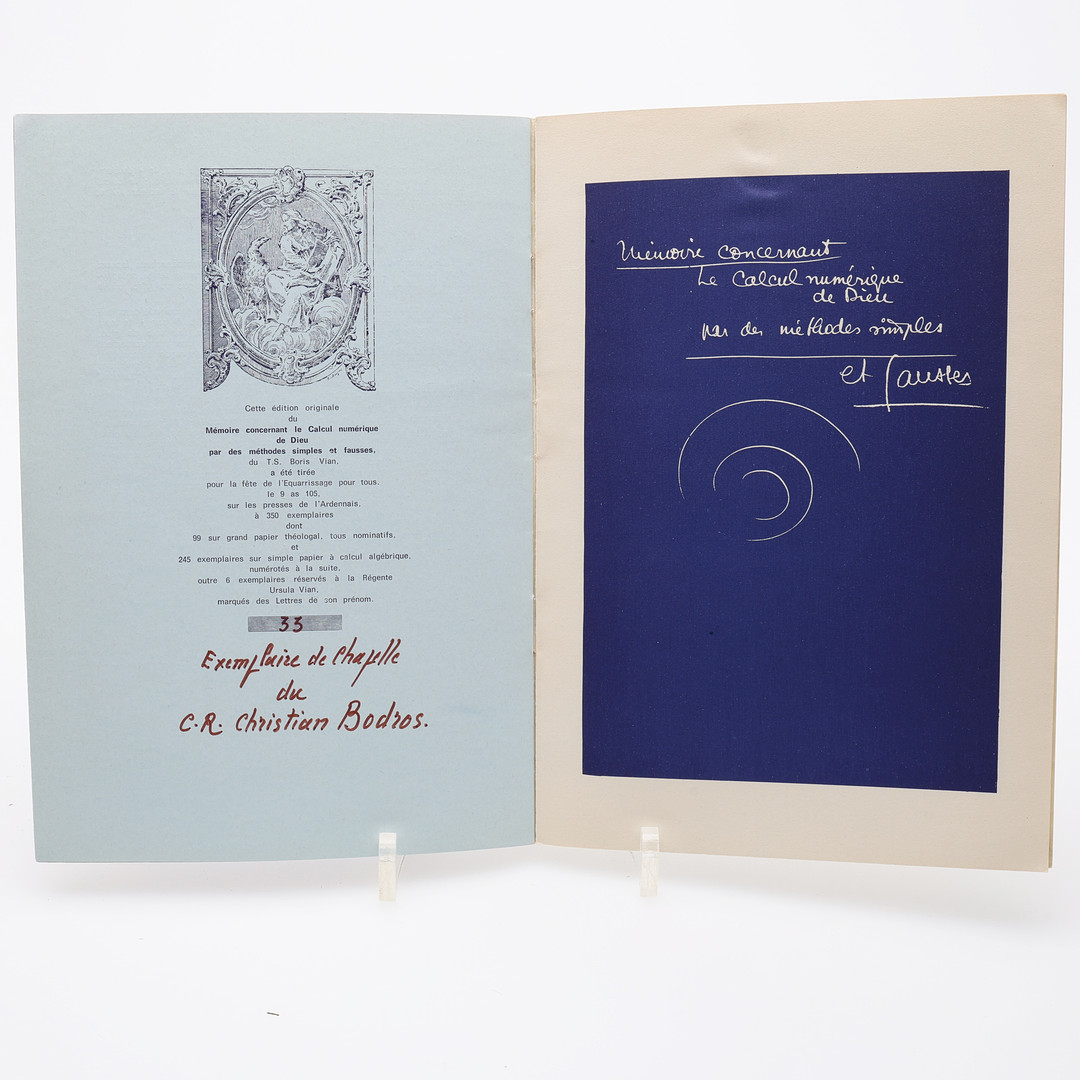 Cette édition originale
du
Mémoire concernant le Calcul numérique
de Dieu
par des méthodes simples et fausses,
du T.S. Boris Vian,
a été tirée
pour la fête de l'Equarrissage pour tous,
le 9 as 105,
sur les presses de l'Ardennais,
à 350 exemplaires
dont
99 sur grand papier théologal, tous nominatifs,
et
245 exemplaires sur simple papier à calcul algébrique,
numérotés à la suite,
outre 6 exemplaires réservés à la Régente
Ursula Vian,
marqués des Lettres de son prénom.
33
Exemplaire de Chapelle
du
C.R. Christian Bodros.
Mémoire concernant
Le Calcul numérique
de Dieu
par des méthodes simples
et fausses